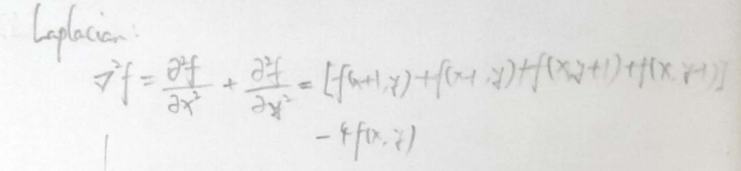 Laplacian:
∇²f = ∂²f/∂x² + ∂²f/∂y² = [f(x+1,y)+f(x-1,y)+f(x,y+1)+f(x,y-1)]
- 4f(x,y)